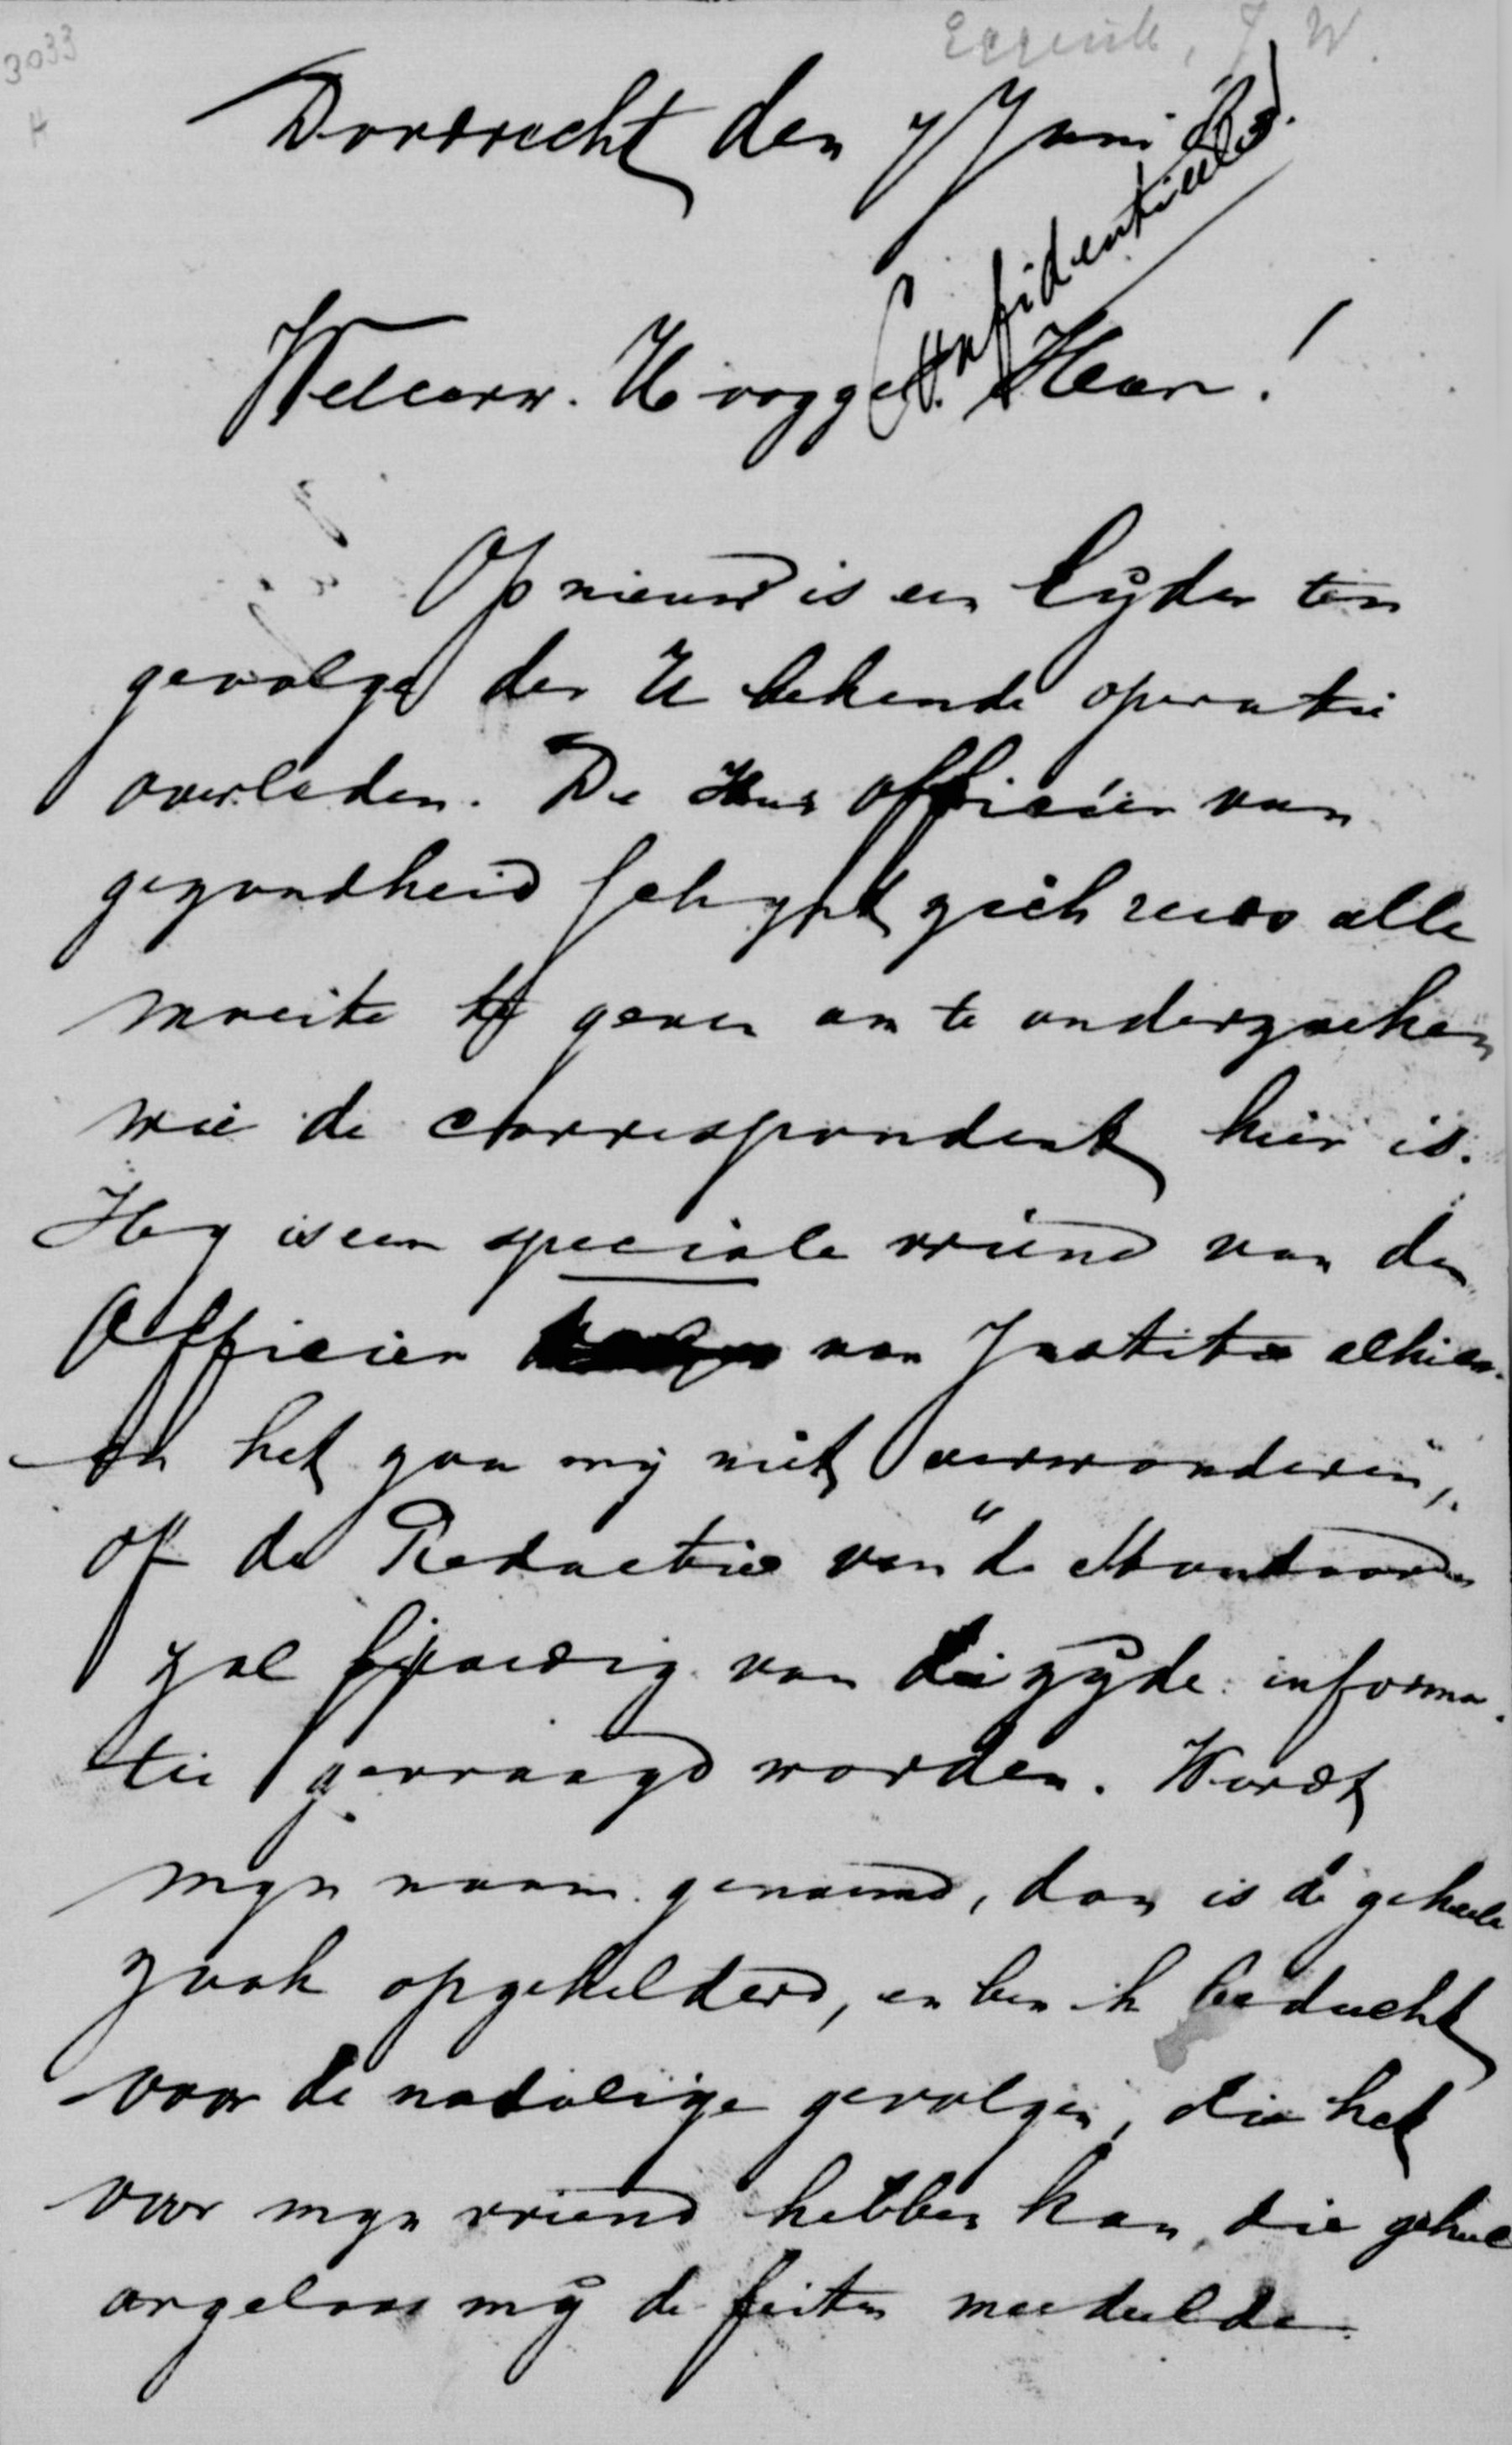 3033
H
J. W.
Dordrecht den 7 Juni 83.
Confidentieel
Weleerw. Hooggel. Heer!
Op nieuw is een lyder ten
gevolge der U bekende operatie
overleden. De Heer officier van
gezondheid schynt zich alle
moeite te geven om te onderzoeken
wie de correspondent hier is.
Hy is een speciale vriend van den
Officier van Justitie alhier.
en het zou mij niet verwonderen,
of de Redactie van "de Standaard
zal spoedig van die zijde informa
tie gevraagd worden. Wordt
myn naam genoemd, dan is de geheele
zaak opgehelderd, en ben ik beducht
voor de nadelige gevolgen, die het
voor myn vriend hebben kan, die geheel
argeloos mij de feiten meedeelde.